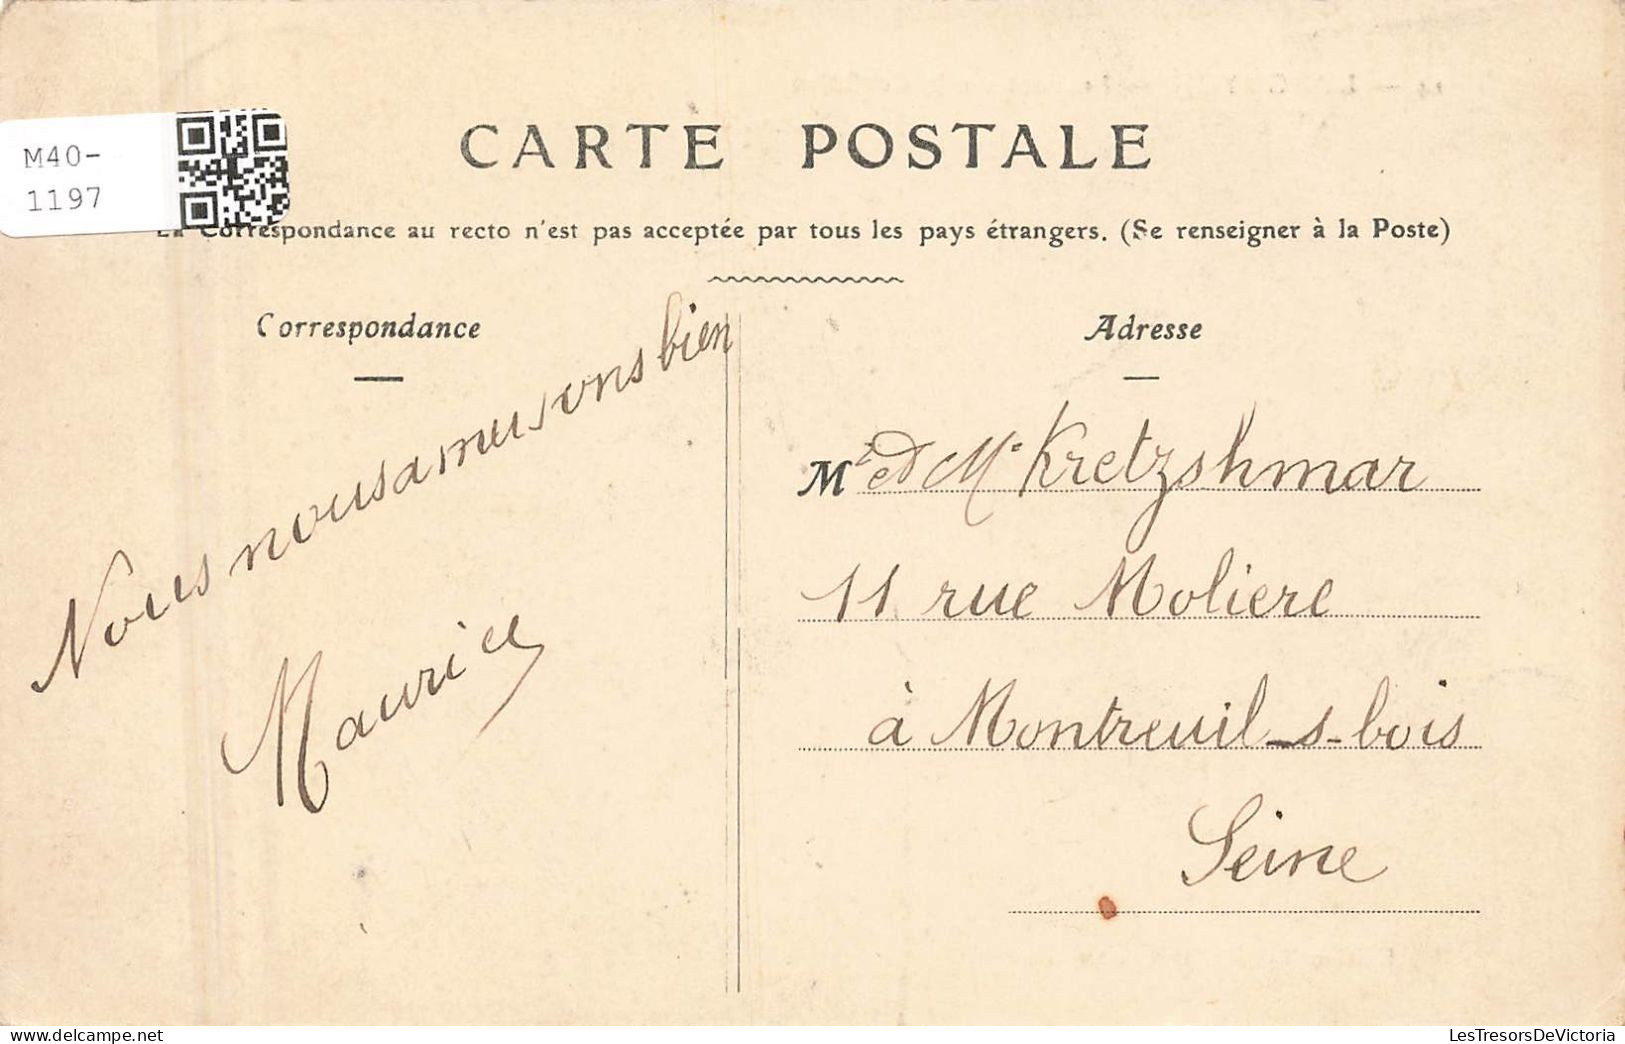 M40-
1197
CARTE POSTALE
La Correspondance au recto n'est pas acceptée par tous les pays étrangers. (Se renseigner à la Poste)
Correspondance
Nous nous amusons bien
Maurice
Adresse
Mr et Me Kretzshmar
11 rue Moliere
à Montreuil-s-bois
Seine
delcampe.net
LesTresorsDeVictoria